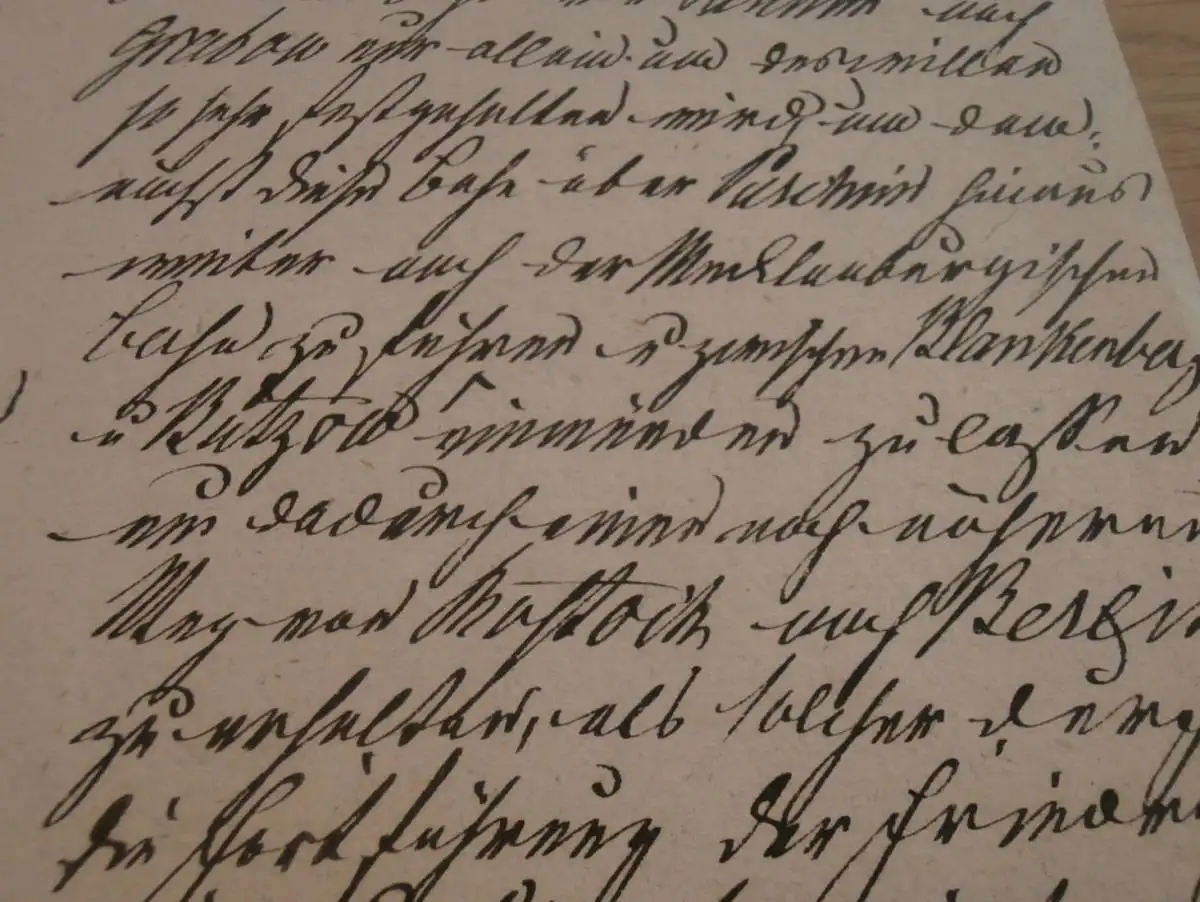 Parchim nach
Grabow nur allein um deswillen
so sehr festgehalten wird, um dem-
nächst diese Bahn über Parchim hinaus
weiter nach der Mecklenburgischen
Bahn zu führen u zwischen Blankenberg
u Bützow einmünden zu lassen
um dadurch einen noch näheren
Weg von Rostock nach Berlin
zu erhalten, als solcher durch
die Fortführung der Friedr